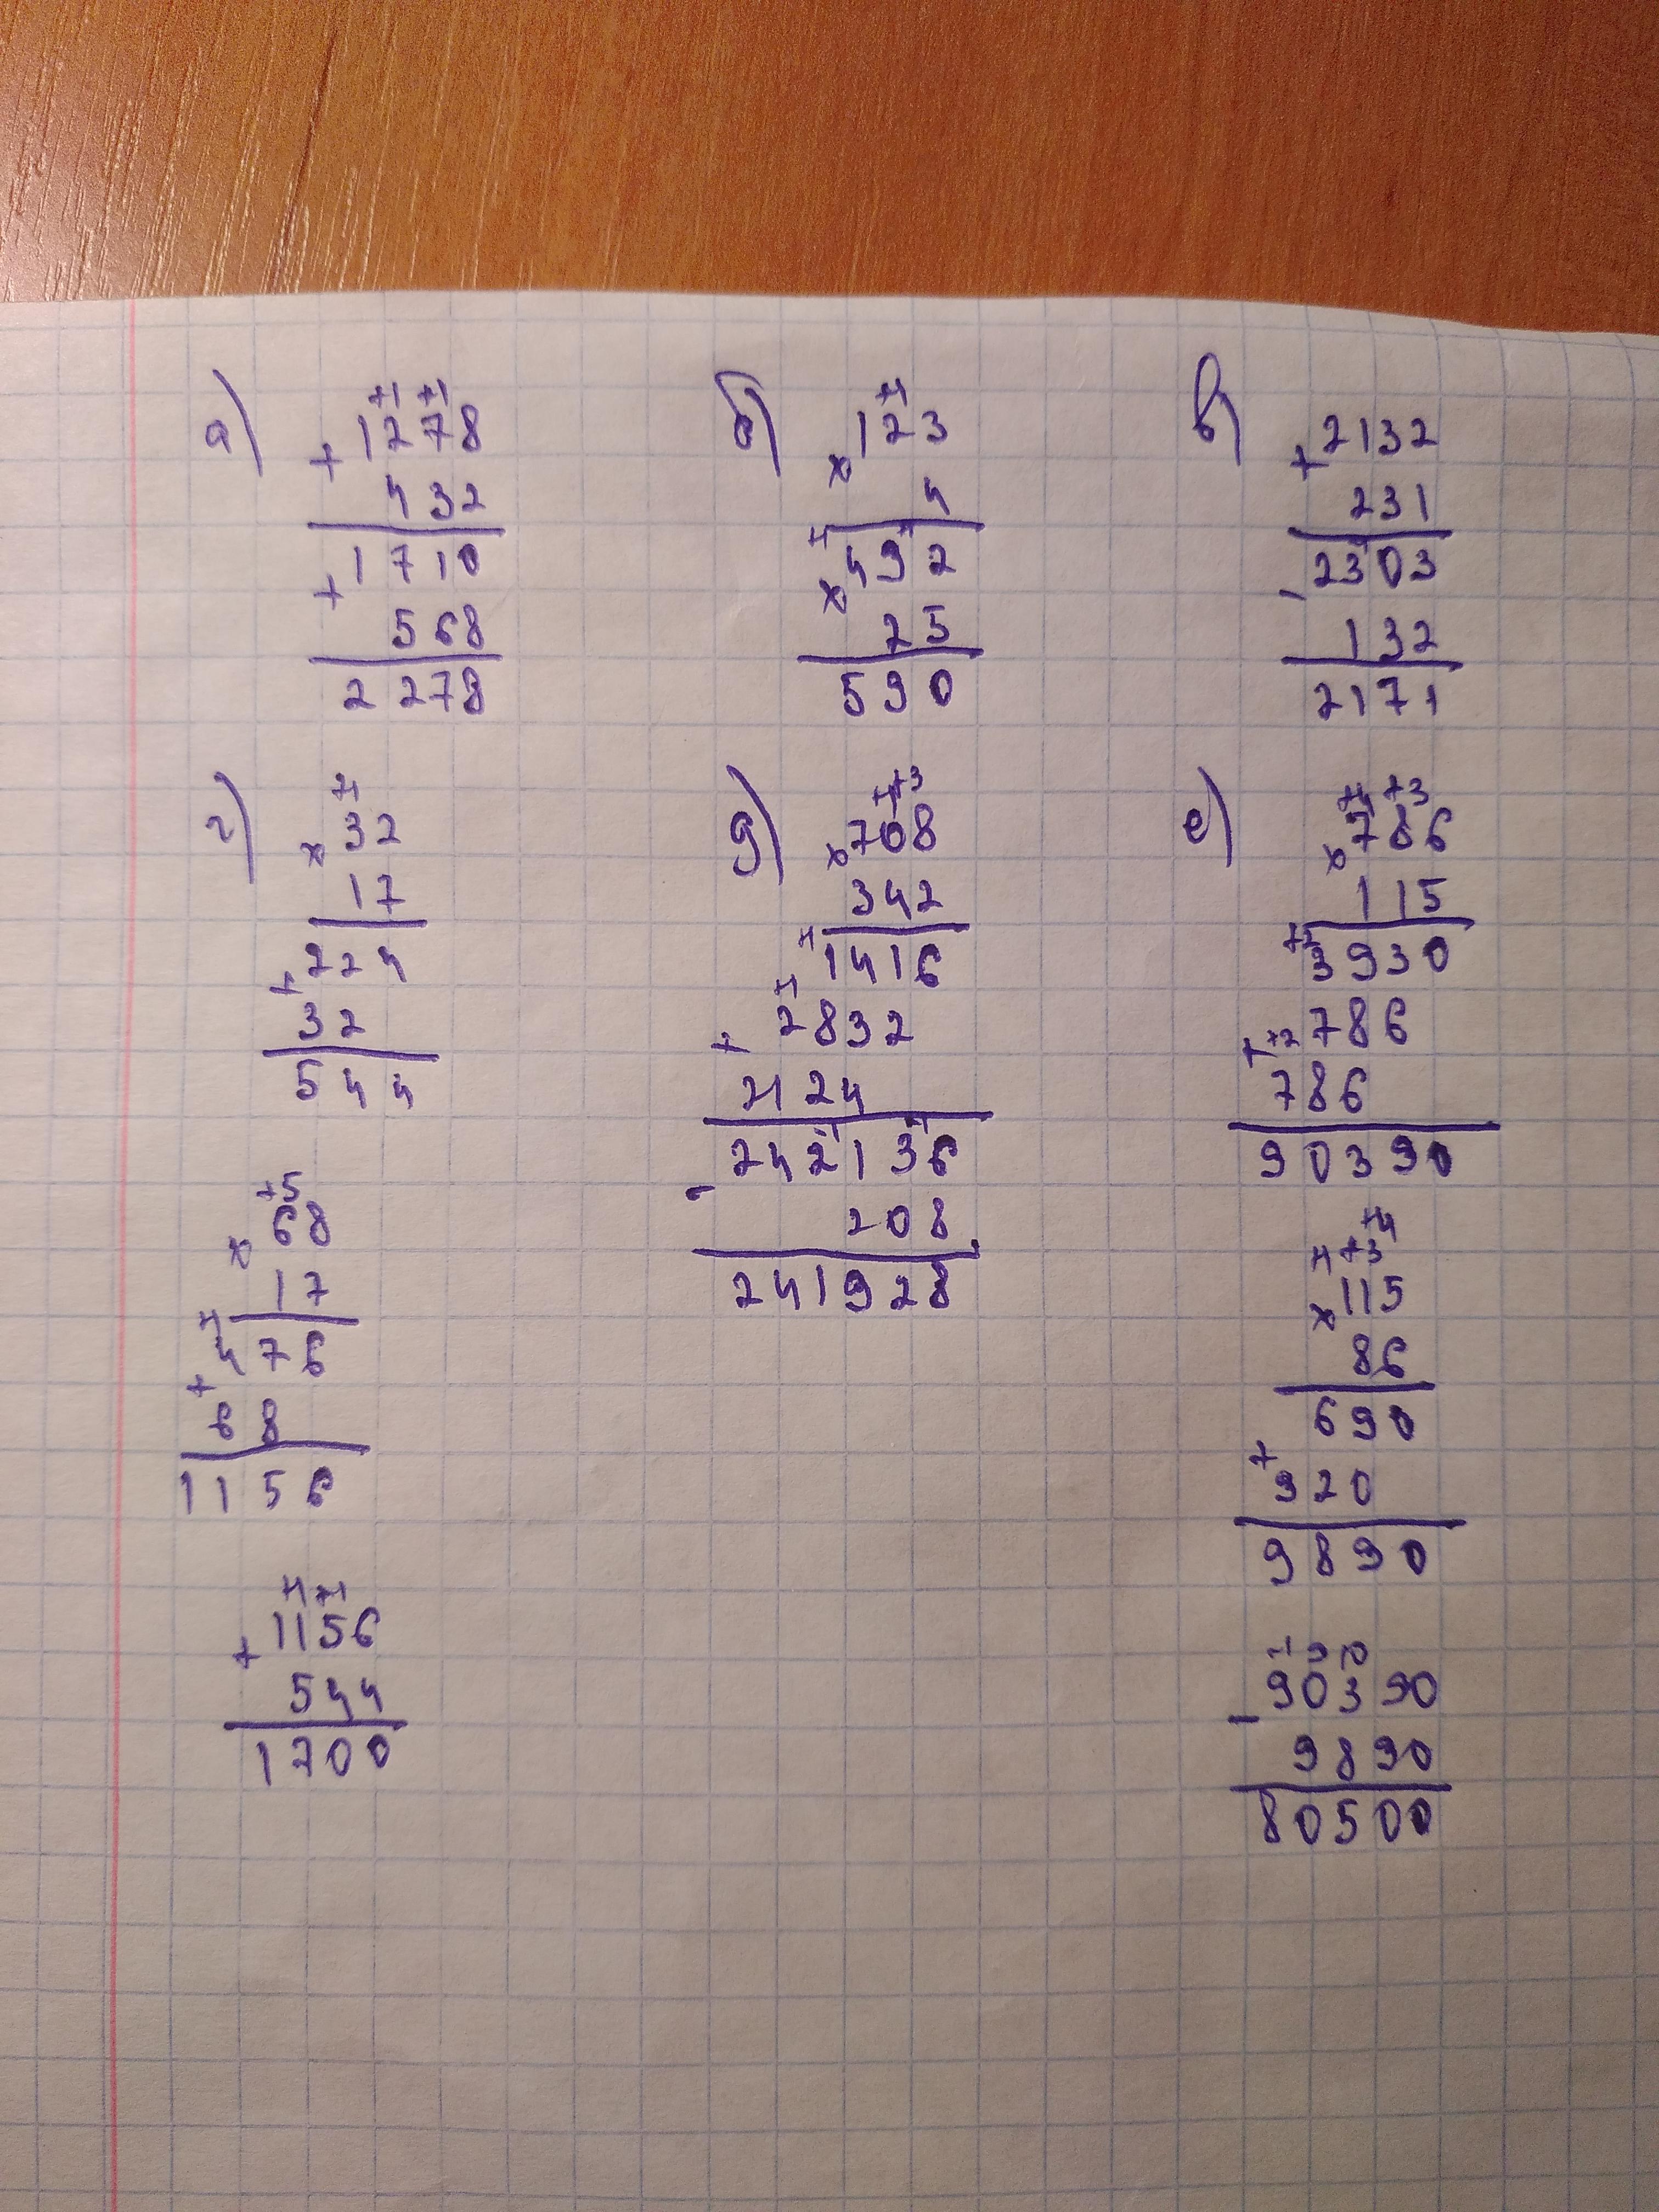 а)
+1 +1
+ 1278
432
1710
+
568
2278
б)
+1
× 123
4
+1 +1
492
×
25
590
в)
+ 2132
231
2303
-
132
2171
г)
+1
× 32
17
224
+
32
544
+5
× 68
17
+1
476
+
68
1156
+1 +1
+ 1156
544
1700
д)
+1 +3
× 708
342
+1
1416
+1
+ 2832
2124
-1 -1
242136
-
208
241928
е)
+4 +3
× 786
115
+2
3930
786
+ +2
786
90390
+4
+1 +3
× 115
86
690
+
920
9890
-1 9 10
- 90390
9890
80500